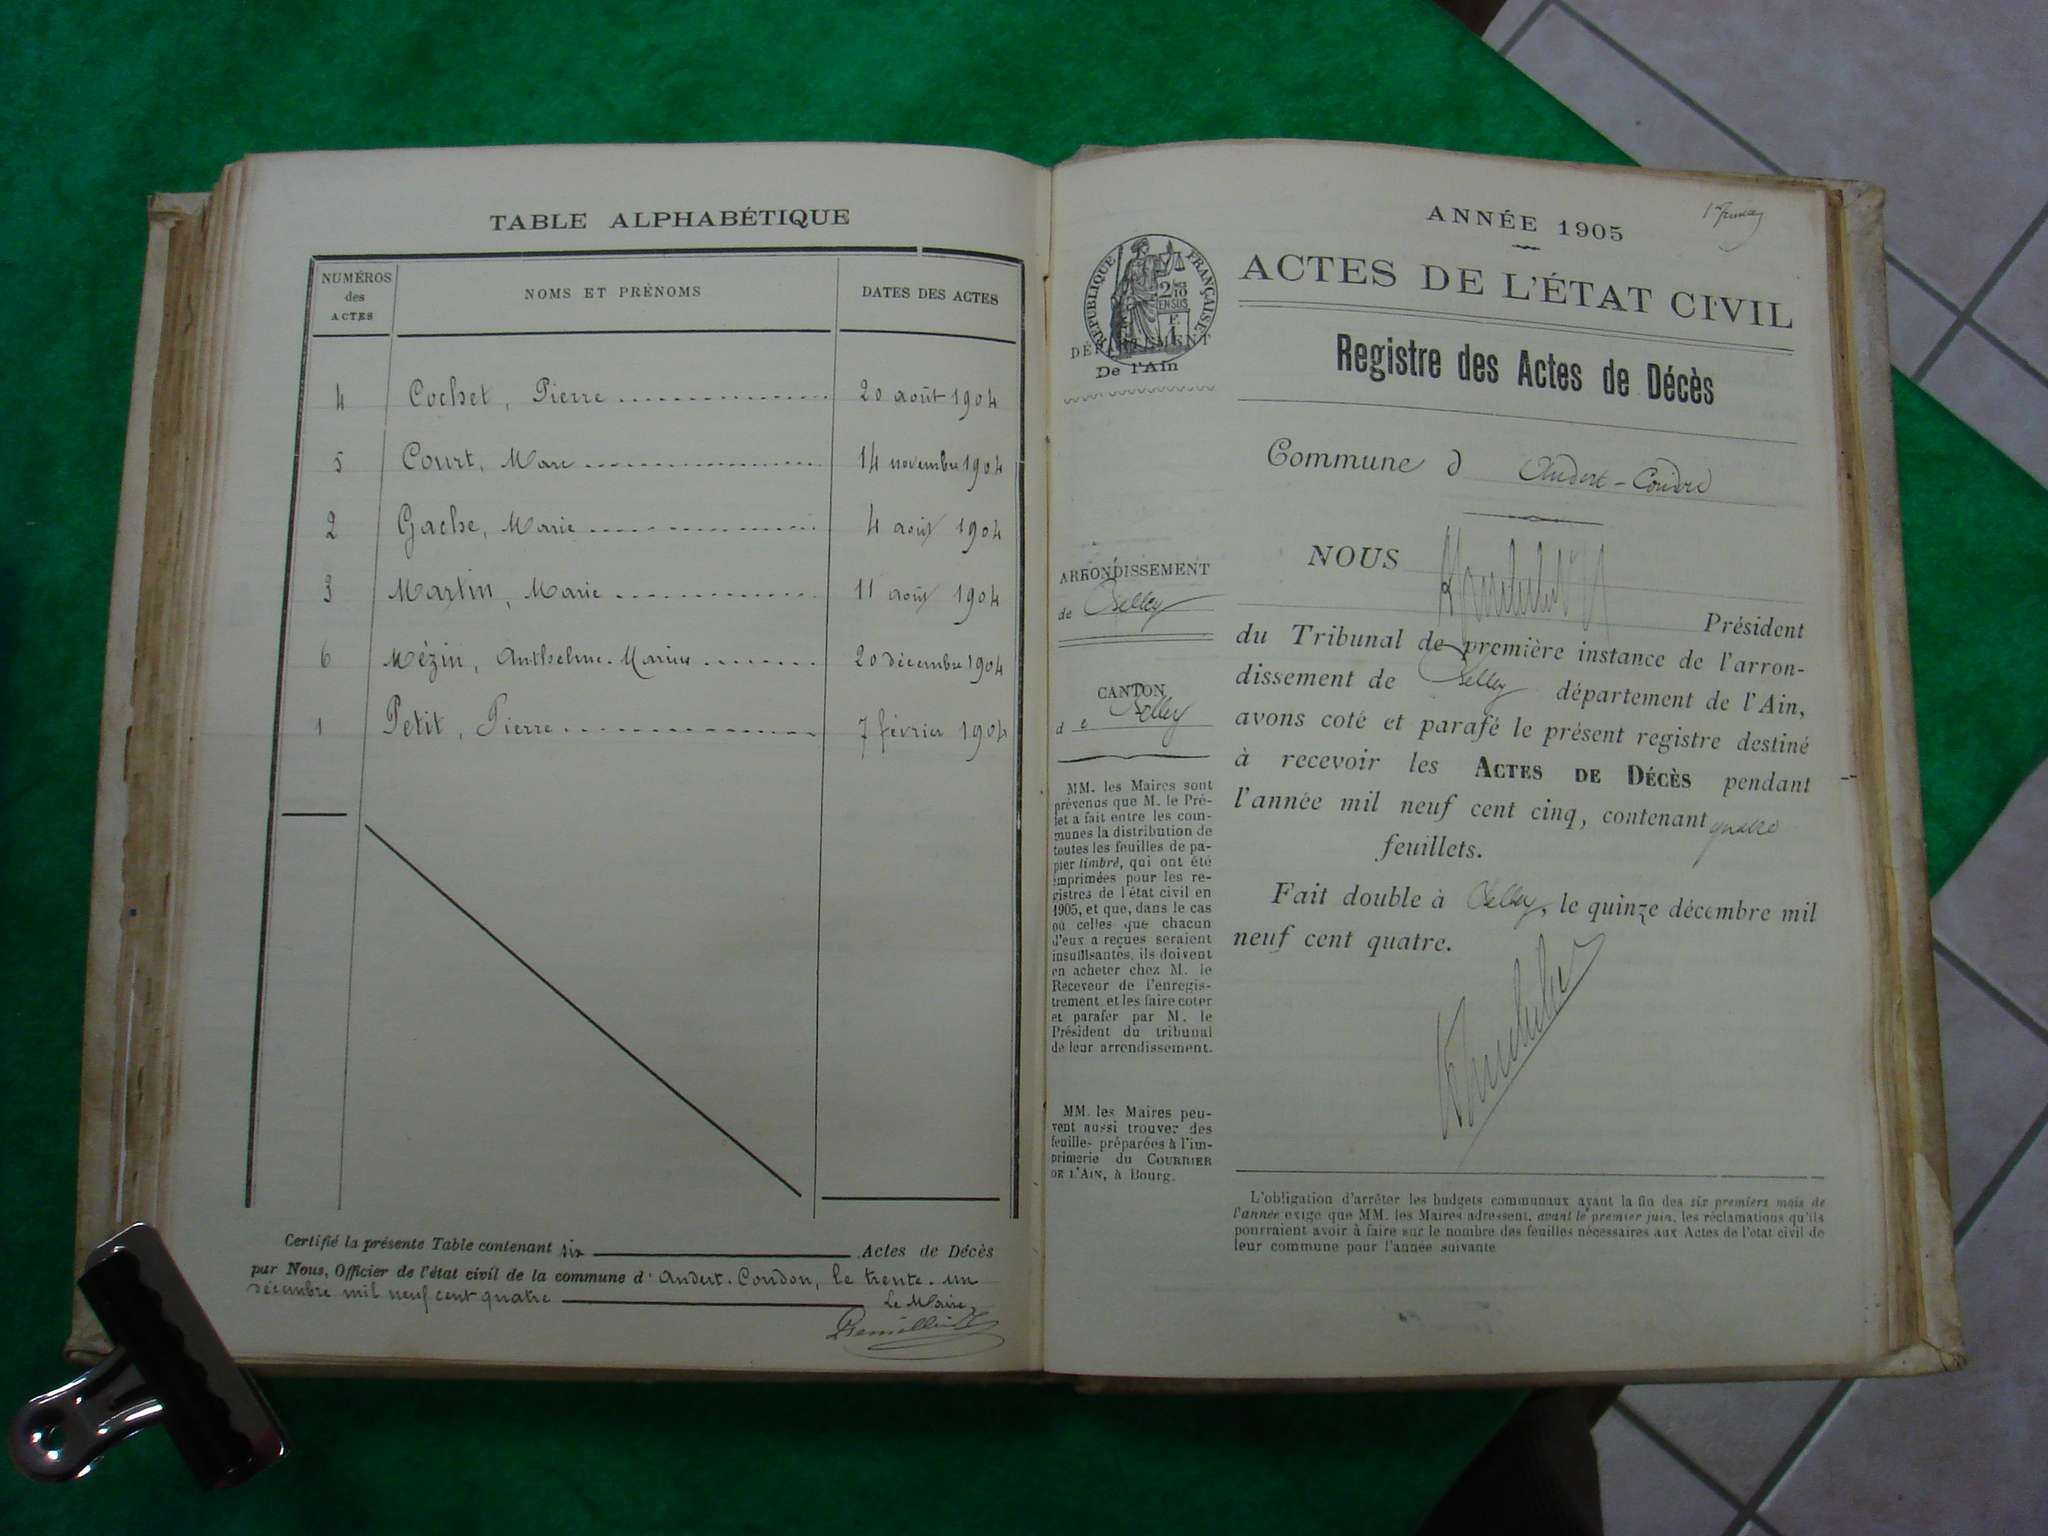 TABLE ALPHABÉTIQUE
NUMÉROS
des
ACTES
NOMS ET PRÉNOMS
DATES DES ACTES
4 Cochet, Pierre 20 août 1904
5 Court, Marc 14 novembre 1904
2 Gache, Marie 4 août 1904
3 Martin, Marie 11 août 1904
6 Mézin, Anthelme-Marius 20 décembre 1904
1 Petit, Pierre 7 février 1904
Certifié la présente Table contenant six Actes de Décès
par Nous, Officier de l'état civil de la commune d' Andert-Condon, le trente-un
décembre mil neuf cent quatre
Le Maire,
ANNÉE 1905
ACTES DE L'ÉTAT CIVIL
RÉPUBLIQUE FRANÇAISE
DÉPARTEMENT
De l'Ain
Registre des Actes de Décès
Commune d Andert-Condon
NOUS
Président
du Tribunal de première instance de l'arron-
dissement de Belley département de l'Ain,
avons coté et parafé le présent registre destiné
à recevoir les ACTES DE DÉCÈS pendant
l'année mil neuf cent cinq, contenant quatre
feuillets.
Fait double à Belley, le quinze décembre mil
neuf cent quatre.
ARRONDISSEMENT
de Belley
CANTON
de Belley
MM. les Maires sont
prévenus que M. le Pré-
fet a fait entre les com-
munes la distribution de
toutes les feuilles de pa-
pier timbré, qui ont été
imprimées pour les re-
gistres de l'état civil en
1905, et que, dans le cas
où celles que chacun
d'eux a reçues seraient
insuffisantes, ils doivent
en acheter chez M. le
Receveur de l'enregis-
trement et les faire coter
et parafer par M. le
Président du tribunal
de leur arrondissement.
MM. les Maires peu-
vent aussi trouver des
feuilles préparées à l'im-
primerie du COURRIER
DE L'AIN, à Bourg.
L'obligation d'arrêter les budgets communaux avant la fin des six premiers mois de
l'année exige que MM. les Maires adressent, avant le premier juin, les réclamations qu'ils
pourraient avoir à faire sur le nombre des feuilles nécessaires aux Actes de l'état civil de
leur commune pour l'année suivante